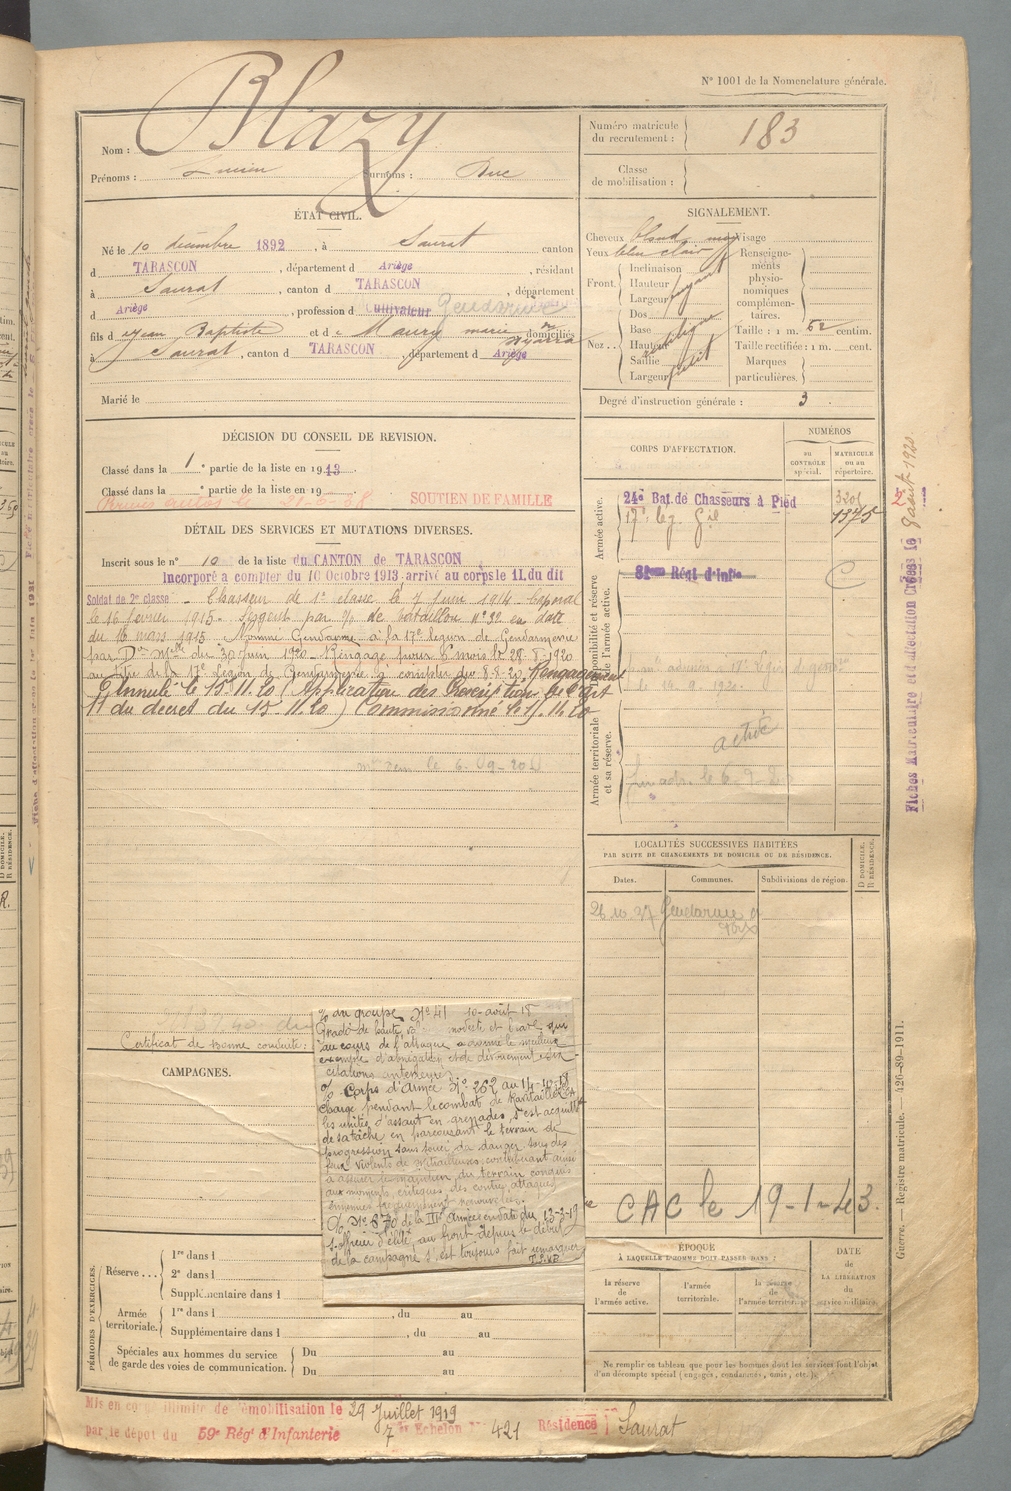 N° 1001 de la Nomenclature générale.
Nom : Blazy
Prénoms : Lucien Surnoms : Duc
Numéro matricule du recrutement : 183
Classe de mobilisation :
ÉTAT CIVIL.
Né le 10 décembre 1892, à Saurat canton
d TARASCON, département d Ariège, résidant
à Saurat, canton d TARASCON, département
d Ariège, profession d Cultivateur Gendarme
fils d Jean Baptiste et d Maury marie domiciliés
à Saurat, canton d TARASCON, département d Ariège
Marié le
SIGNALEMENT.
Cheveux blond Visage
Yeux bleu clair
Front. Inclinaison
Hauteur fuyant
Largeur
Nez.. Dos
Base
Hauteur rectiligne
Saillie
Largeur petit
Renseignements physionomiques complémentaires.
Taille : 1 m. 62 centim.
Taille rectifiée : 1 m. cent.
Marques particulières.
Degré d'instruction générale : 3
DÉCISION DU CONSEIL DE REVISION.
Classé dans la 1e partie de la liste en 1913.
Classé dans la e partie de la liste en 19
SOUTIEN DE FAMILLE
CORPS D'AFFECTATION.
NUMÉROS
au CONTRÔLE spécial.
MATRICULE ou au répertoire.
Armée active.
24e Bat. de Chasseurs à Pied 3201
17e Leg. Gie 1375
Disponibilité et réserve de l'armée active.
Régt d'Infie
Armée territoriale et sa réserve.
DÉTAIL DES SERVICES ET MUTATIONS DIVERSES.
Inscrit sous le n° 10 de la liste du CANTON de TARASCON
Incorporé à compter du 10 Octobre 1913 arrivé au corps le 11. du dit
Soldat de 2e classe - Chasseur de 1e classe le 7 juin 1914 Caporal
le 16 février 1915. Sergent par % de bataillon N° 32 en date
du 16 mars 1915. Nommé Gendarme à la 17e légion de Gendarmerie
par Don Mlle du 30 Juin 1920. Rengagé pour 6 mois le 28-8-1920
au titre de la 17e Légion de Gendarmerie à compter du 8.8.20. Rengagement
Annulé le 15.11.20 (Application des Prescriptions de l'art
11 du decret du 15.11.20) Commissionné le 15.11.20
le 6-09-20
Certificat de bonne conduite :
LOCALITÉS SUCCESSIVES HABITÉES
PAR SUITE DE CHANGEMENTS DE DOMICILE OU DE RÉSIDENCE.
Dates. Communes. Subdivisions de région. D DOMICILE. R RÉSIDENCE.
26.10.27 Gendarmerie
CAMPAGNES.
% du groupe N° 41 10-août 18
Gradé de haute modeste et brave qui
au cours de l'attaque a donné le meilleur
exemple d'abnégation et de dévouement
citations antérieures
% Corps d'Armée N° 262 au 14-10-18
Chargé pendant le combat de ravitailler
les unités d'assaut en grenades s'est acquitté
de sa tâche en parcourant le terrain de
progression sans souci du danger sous des
feux violents de mitrailleuses, contribuant ainsi
à assurer le maintien du terrain conquis
aux moments critiques des contre attaques
ennemies fréquemment renouvelées.
% N° 870 de la IIe Armée en date du 13-2-19
S-officier d'élite, au front depuis le début
de la campagne s'est toujours fait remarquer
CAC le 19-1-43.
PÉRIODES D'EXERCICES.
Réserve... 1re dans l
2e dans l
Supplémentaire dans l
Armée territoriale. 1re dans l , du au
Supplémentaire dans l , du au
Spéciales aux hommes du service de garde des voies de communication. Du au
Du au
ÉPOQUE
À LAQUELLE L'HOMME DOIT PASSER DANS :
la réserve de l'armée active.
l'armée territoriale.
la réserve de l'armée territoriale.
DATE de LA LIBÉRATION du service militaire.
Ne remplir ce tableau que pour les hommes dont les services font l'objet
d'un décompte spécial (engagés, condamnés, omis, etc.).
Mis en congé illimité de démobilisation le 29 Juillet 1919
par le dépôt du 59e Régt d'Infanterie 7e Echelon N° 421 Résidence Saurat
Guerre. — Registre matricule. — 426-89-1911.